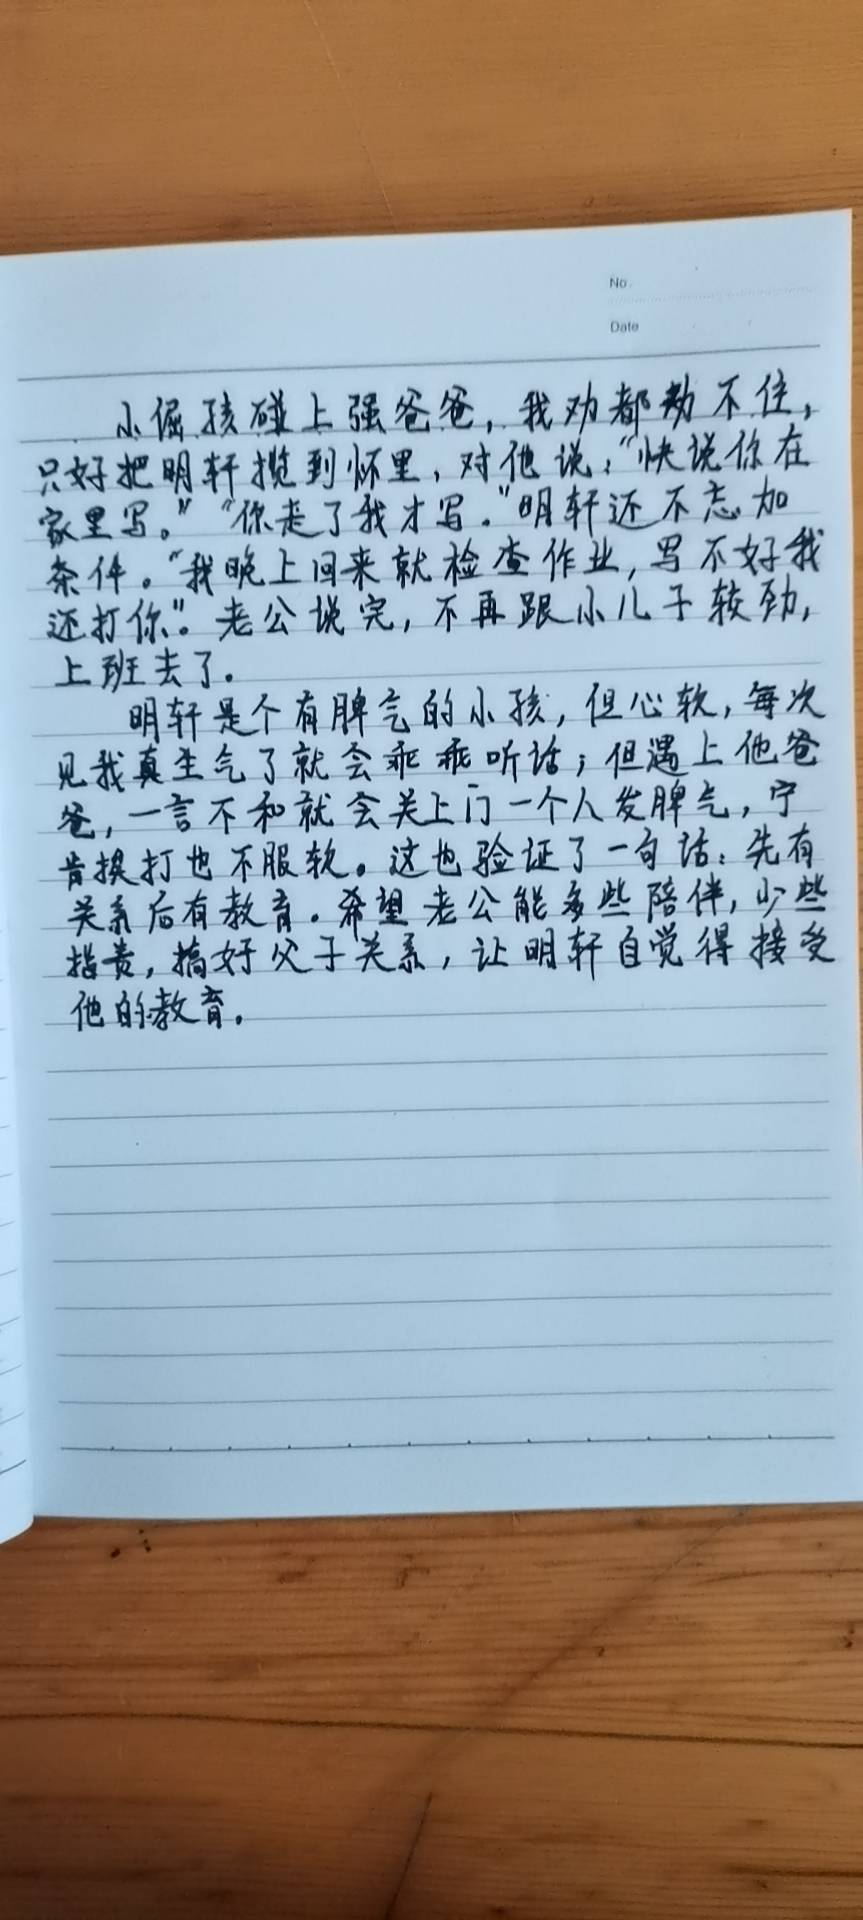 No.
Date
小倔孩碰上强爸爸，我劝都劝不住，
只好把明轩揽到怀里，对他说：“快说你在
家里写。”“你走了我才写。”明轩还不忘加
条件。“我晚上回来就检查作业，写不好我
还打你”。老公说完，不再跟小儿子较劲，
上班去了。
明轩是个有脾气的小孩，但心软，每次
见我真生气了就会乖乖听话；但遇上他爸
爸，一言不和就会关上门一个人发脾气，宁
肯挨打也不服软。这也验证了一句话：先有
关系后有教育。希望老公能多些陪伴，少些
指责，搞好父子关系，让明轩自觉得接受
他的教育。